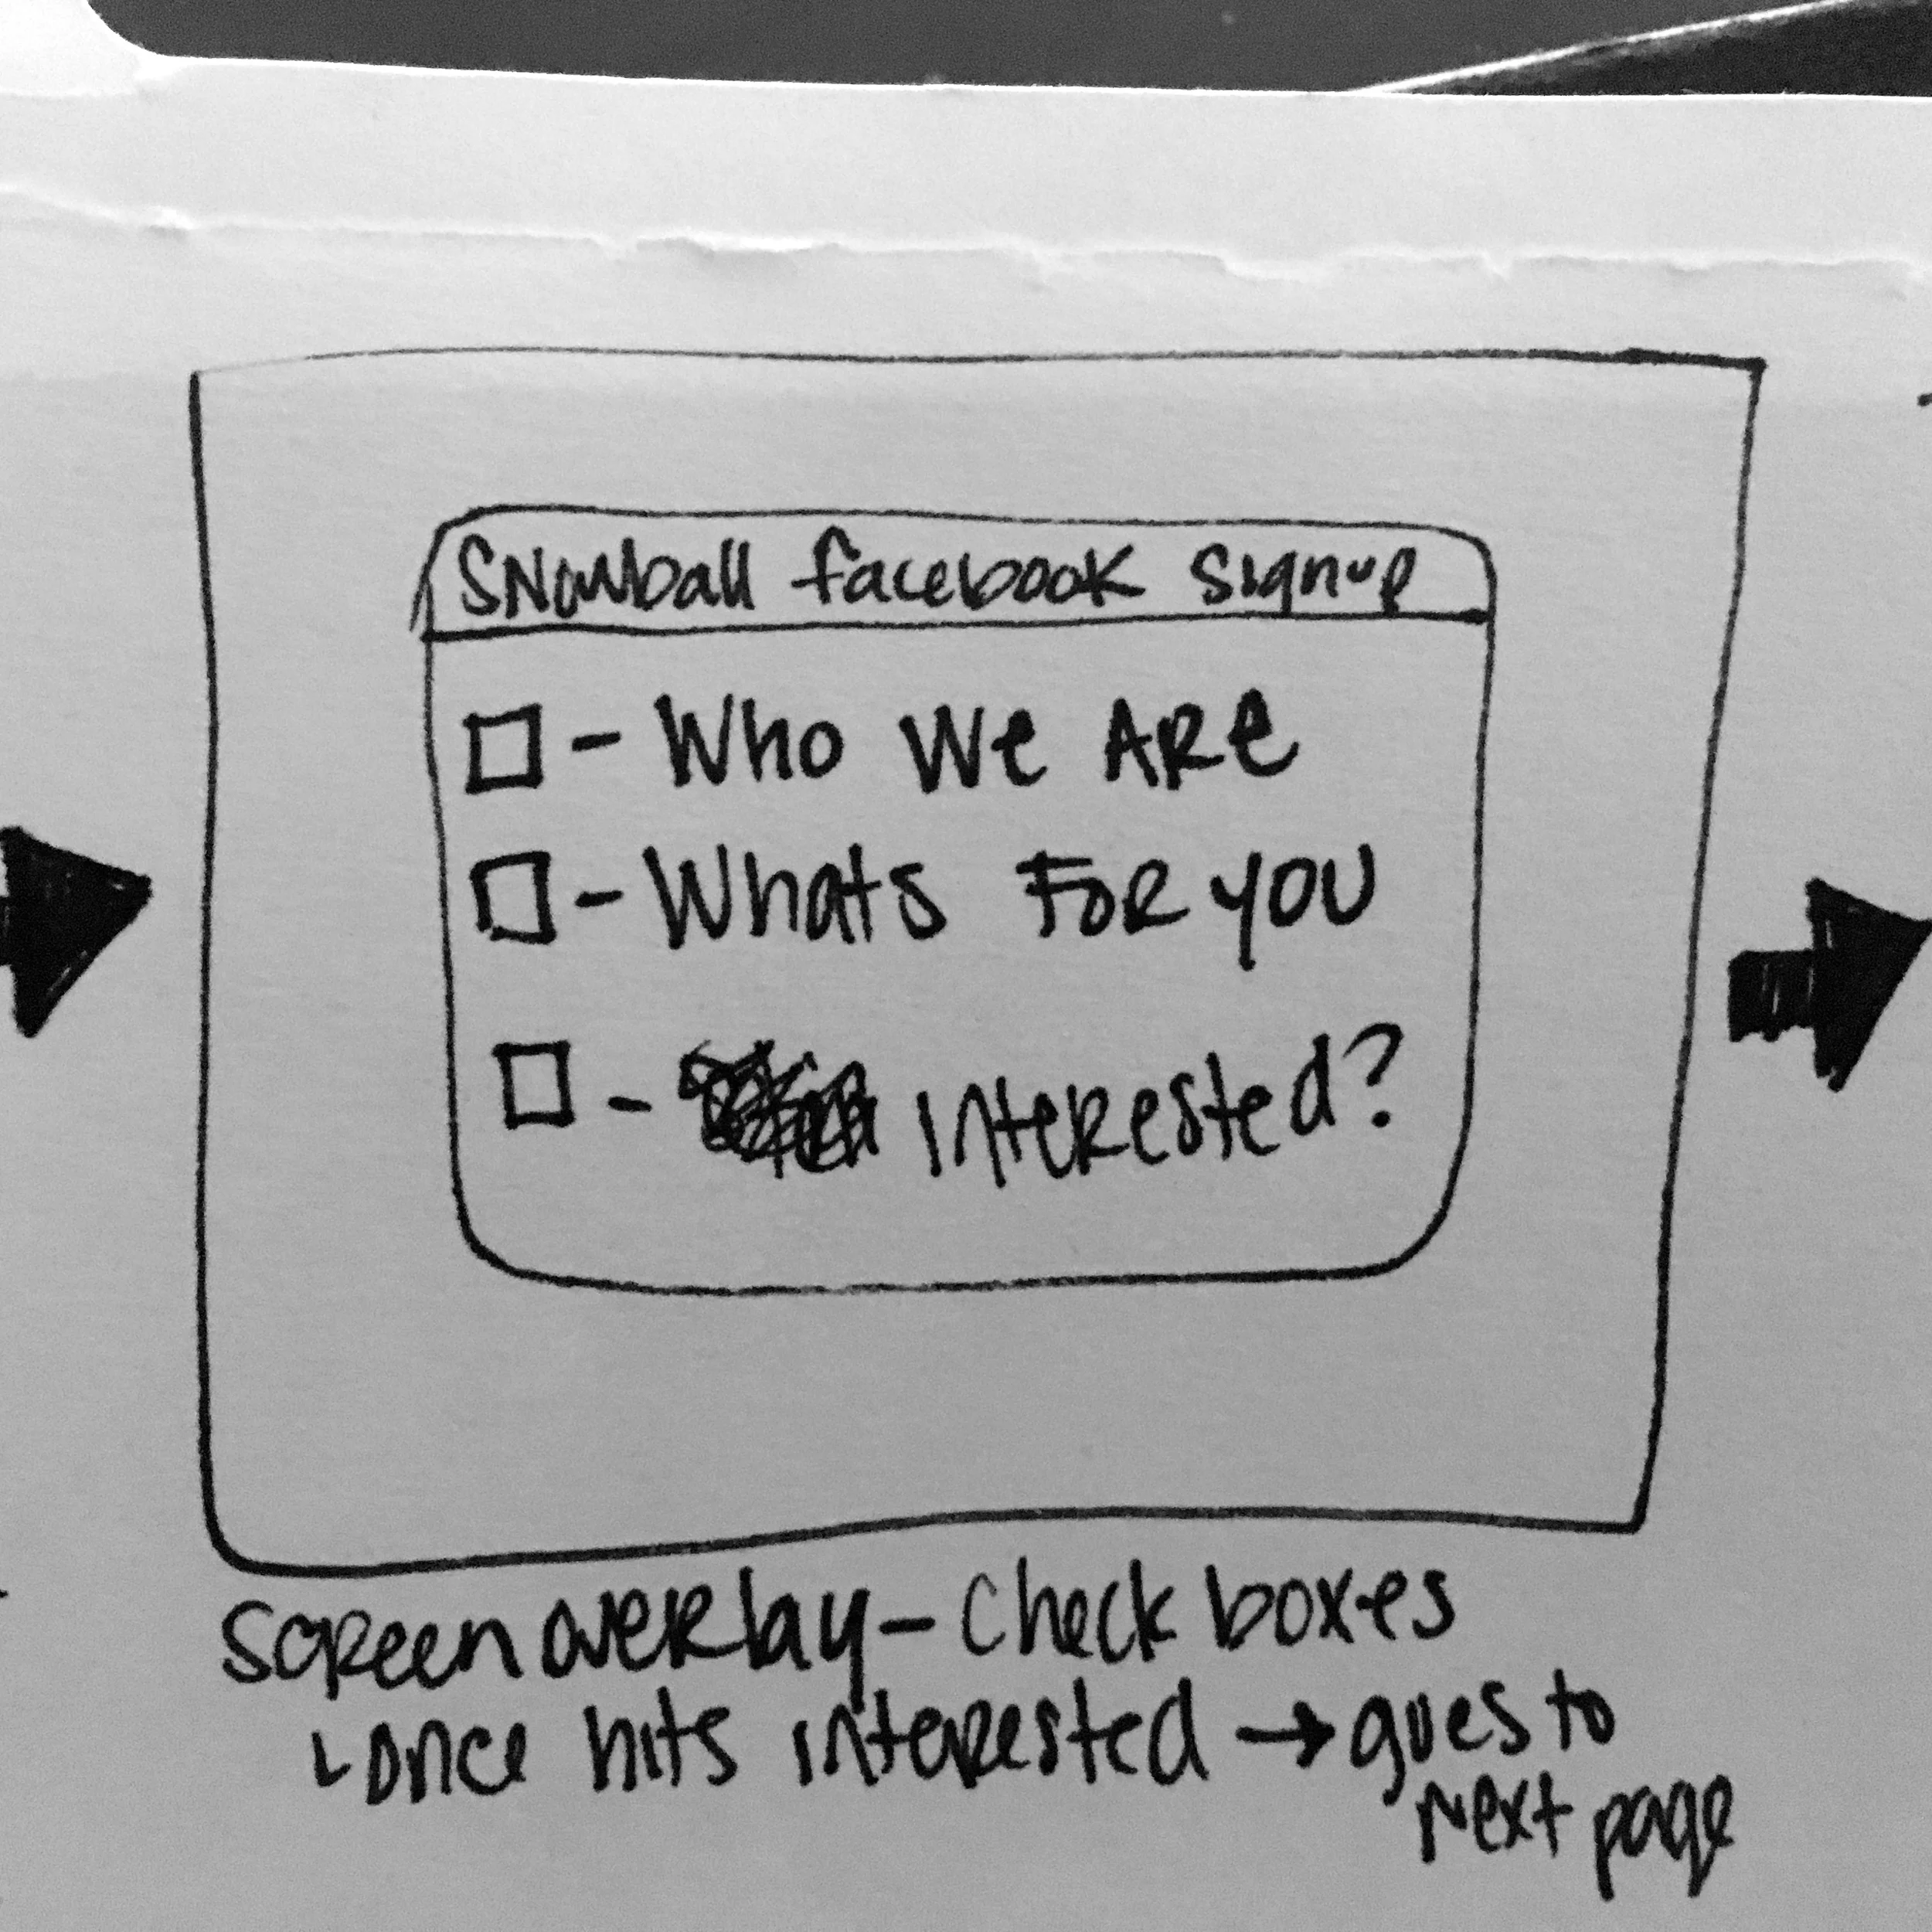 Snowball facebook signup
- Who We ARe
- Whats FoR you
- interested?
Screen overlay - Check boxes
once hits interested → goes to
next page